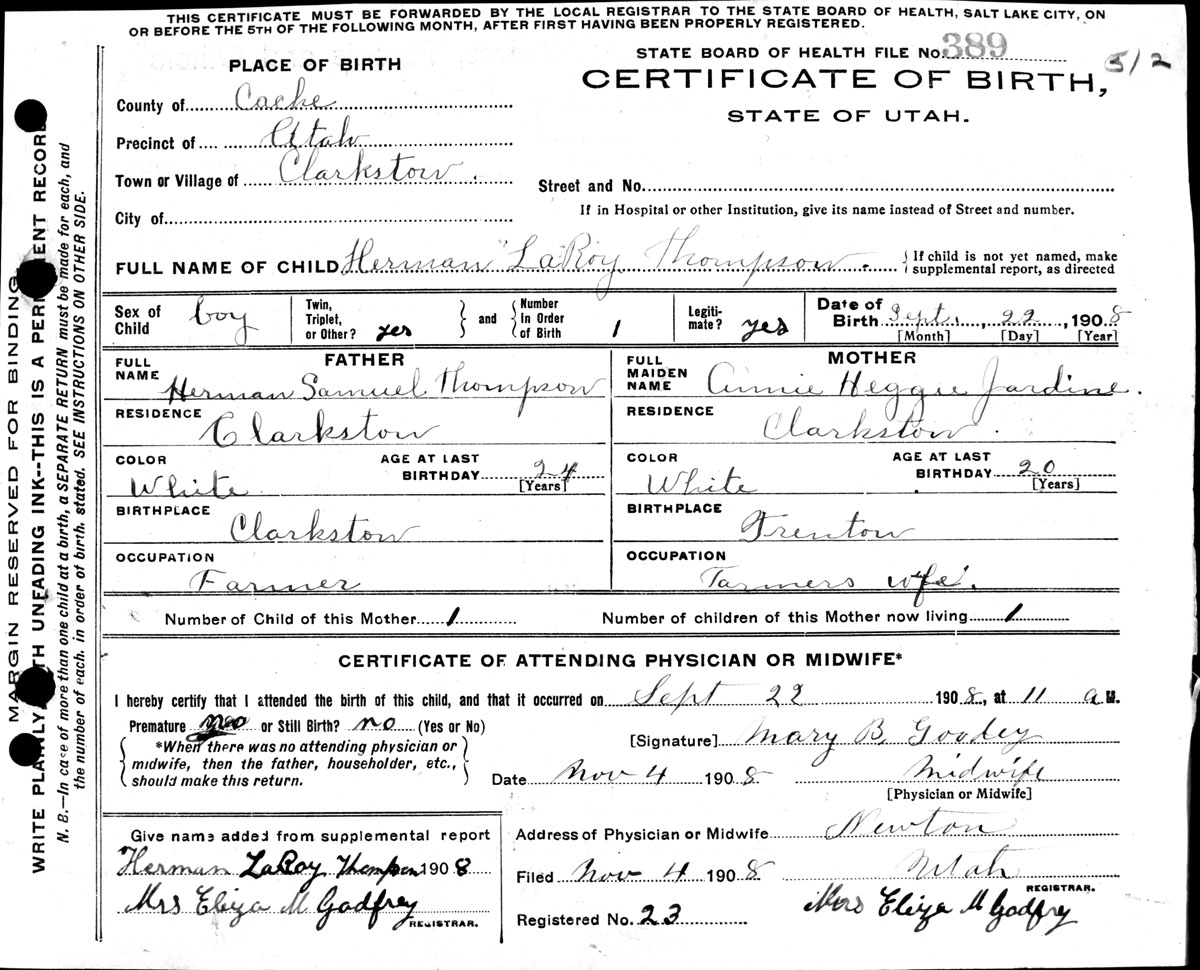 THIS CERTIFICATE MUST BE FORWARDED BY THE LOCAL REGISTRAR TO THE STATE BOARD OF HEALTH, SALT LAKE CITY, ON
OR BEFORE THE 5TH OF THE FOLLOWING MONTH, AFTER FIRST HAVING BEEN PROPERLY REGISTERED.
STATE BOARD OF HEALTH FILE No. 389
512
PLACE OF BIRTH
CERTIFICATE OF BIRTH,
STATE OF UTAH.
County of Cache
Precinct of Utah
Town or Village of Clarkston.
Street and No.
City of
If in Hospital or other Institution, give its name instead of Street and number.
FULL NAME OF CHILD Herman "LaRoy Thompson. If child is not yet named, make
supplemental report, as directed
Sex of Child boy Twin, Triplet, or Other? yes and Number In Order of Birth 1 Legiti-mate? yes Date of Birth Sept., 22, 1908
[Month] [Day] [Year]
FATHER MOTHER
FULL NAME Herman Samuel Thompson FULL MAIDEN NAME Annie Heggie Jardine.
RESIDENCE Clarkston RESIDENCE Clarkston.
COLOR White AGE AT LAST BIRTHDAY 24 [Years] COLOR White AGE AT LAST BIRTHDAY 20 [Years]
BIRTHPLACE Clarkston BIRTHPLACE Trenton
OCCUPATION Farmer OCCUPATION Farmers wife.
Number of Child of this Mother 1 Number of children of this Mother now living 1
CERTIFICATE OF ATTENDING PHYSICIAN OR MIDWIFE*
I hereby certify that I attended the birth of this child, and that it occurred on Sept 22 1908, at 11 a M.
Premature or Still Birth? no (Yes or No)
*When there was no attending physician or
midwife, then the father, householder, etc.,
should make this return.
[Signature] Mary B. Goodey
Date Nov 4 1908 Midwife
[Physician or Midwife]
Give name added from supplemental report
Herman LaRoy Thompson 1908
Mrs Eliza M Godfrey
REGISTRAR.
Address of Physician or Midwife Newton
Filed Nov 4 1908 Utah
REGISTRAR.
Registered No. 23 Mrs Eliza M Godfrey
MARGIN RESERVED FOR BINDING
WRITE PLAINLY WITH UNFADING INK--THIS IS A PERMANENT RECORD
N. B.—In case of more than one child at a birth, a SEPARATE RETURN must be made for each, and
the number of each, in order of birth, stated. SEE INSTRUCTIONS ON OTHER SIDE.